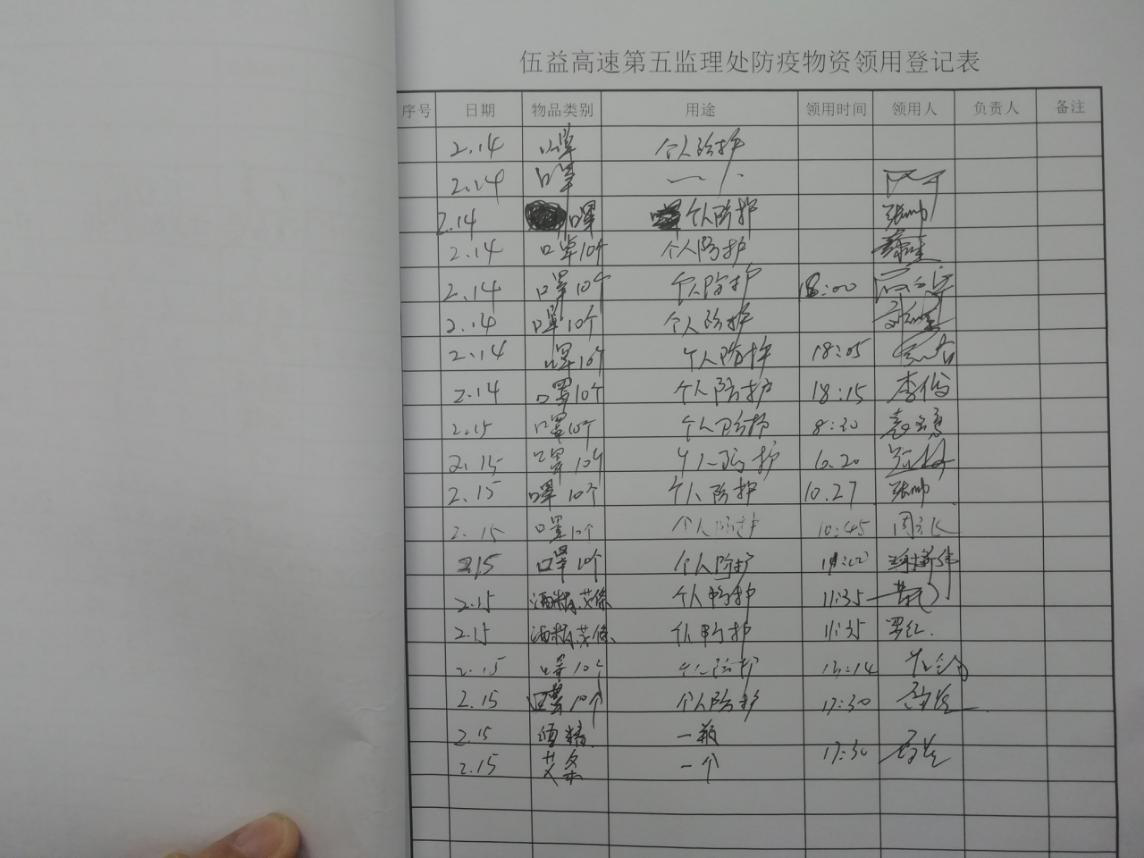 伍益高速第五监理处防疫物资领用登记表
序号 日期 物品类别 用途 领用时间 领用人 负责人 备注
2.14 口罩 个人防护
2.14 口罩
2.14 口罩 个人防护 张帅
2.14 口罩10个 个人防护
2.14 口罩10个 个人防护 18:00
2.14 口罩10个 个人防护
2.14 口罩10个 个人防护 18:05
2.14 口罩10个 个人防护 18:15 李俊
2.15 口罩10个 个人防护 8:30
2.15 口罩10个 个人防护 10.20
2.15 口罩10个 个人防护 10.27 张帅
2.15 口罩10个 个人防护 10:45
2.15 口罩10个 个人防护
2.15 酒精,艾條 个人防护 11:35
2.15 酒精,艾條 个人防护 11:35
2.15 口罩10个 个人防护 13:14
2.15 口罩10个 个人防护 17:30
2.15 酒精 一瓶
2.15 艾条 一个 17:30